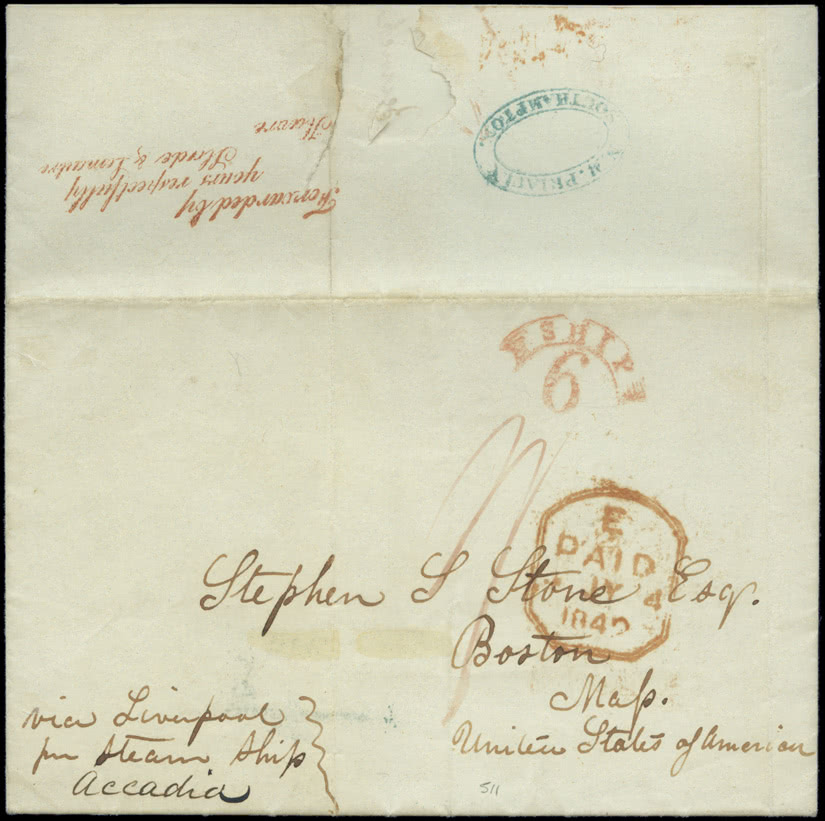 Forwarded by
yours respectfully
Havre
SOUTHAMPTON
SHIP
6
E
PAID
4
Stephen S Stone Esqr.
Boston
Maſs.
United States of American
via Liverpool
pr Steam Ship
Accadia
511